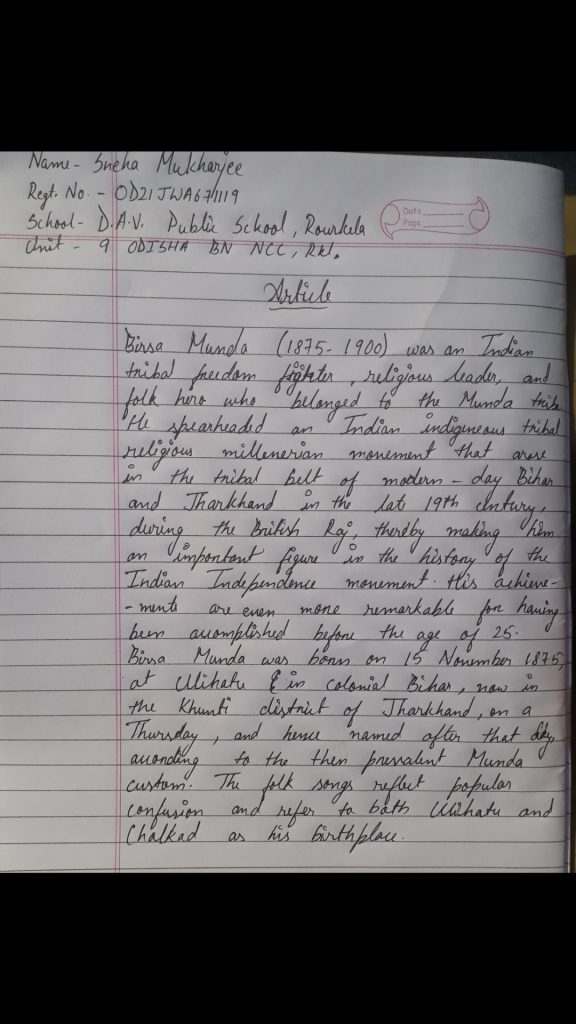 Name- Sneha Mukharjee
Regt. No. - OD21JWA671119
School- D.A.V. Public School, Rourkela
Unit - 9 ODISHA BN NCC, Rkl.
Date
Page
Article
Birsa Munda (1875-1900) was an Indian
tribal freedom fighter, religious leader, and
folk hero who belonged to the Munda tribe.
He spearheaded an Indian indigineous tribal
religious millenerian movement that arose
in the tribal belt of modern-day Bihar
and Jharkhand in the lat 19th century,
during the British Raj, thereby making him
an important figure in the history of the
Indian Independence movement. His achieve-
-ments are even more remarkable for having
been accomplished before the age of 25.
Birsa Munda was born on 15 November 1875,
at Ulihatu & in colonial Bihar, now in
the Khunti district of Jharkhand, on a
Thursday, and hence named after that day,
according to the then prevalent Munda
custom. The folk songs reflect popular
confusion and refer to both Ulihatu and
Chalkad as his birthplace.